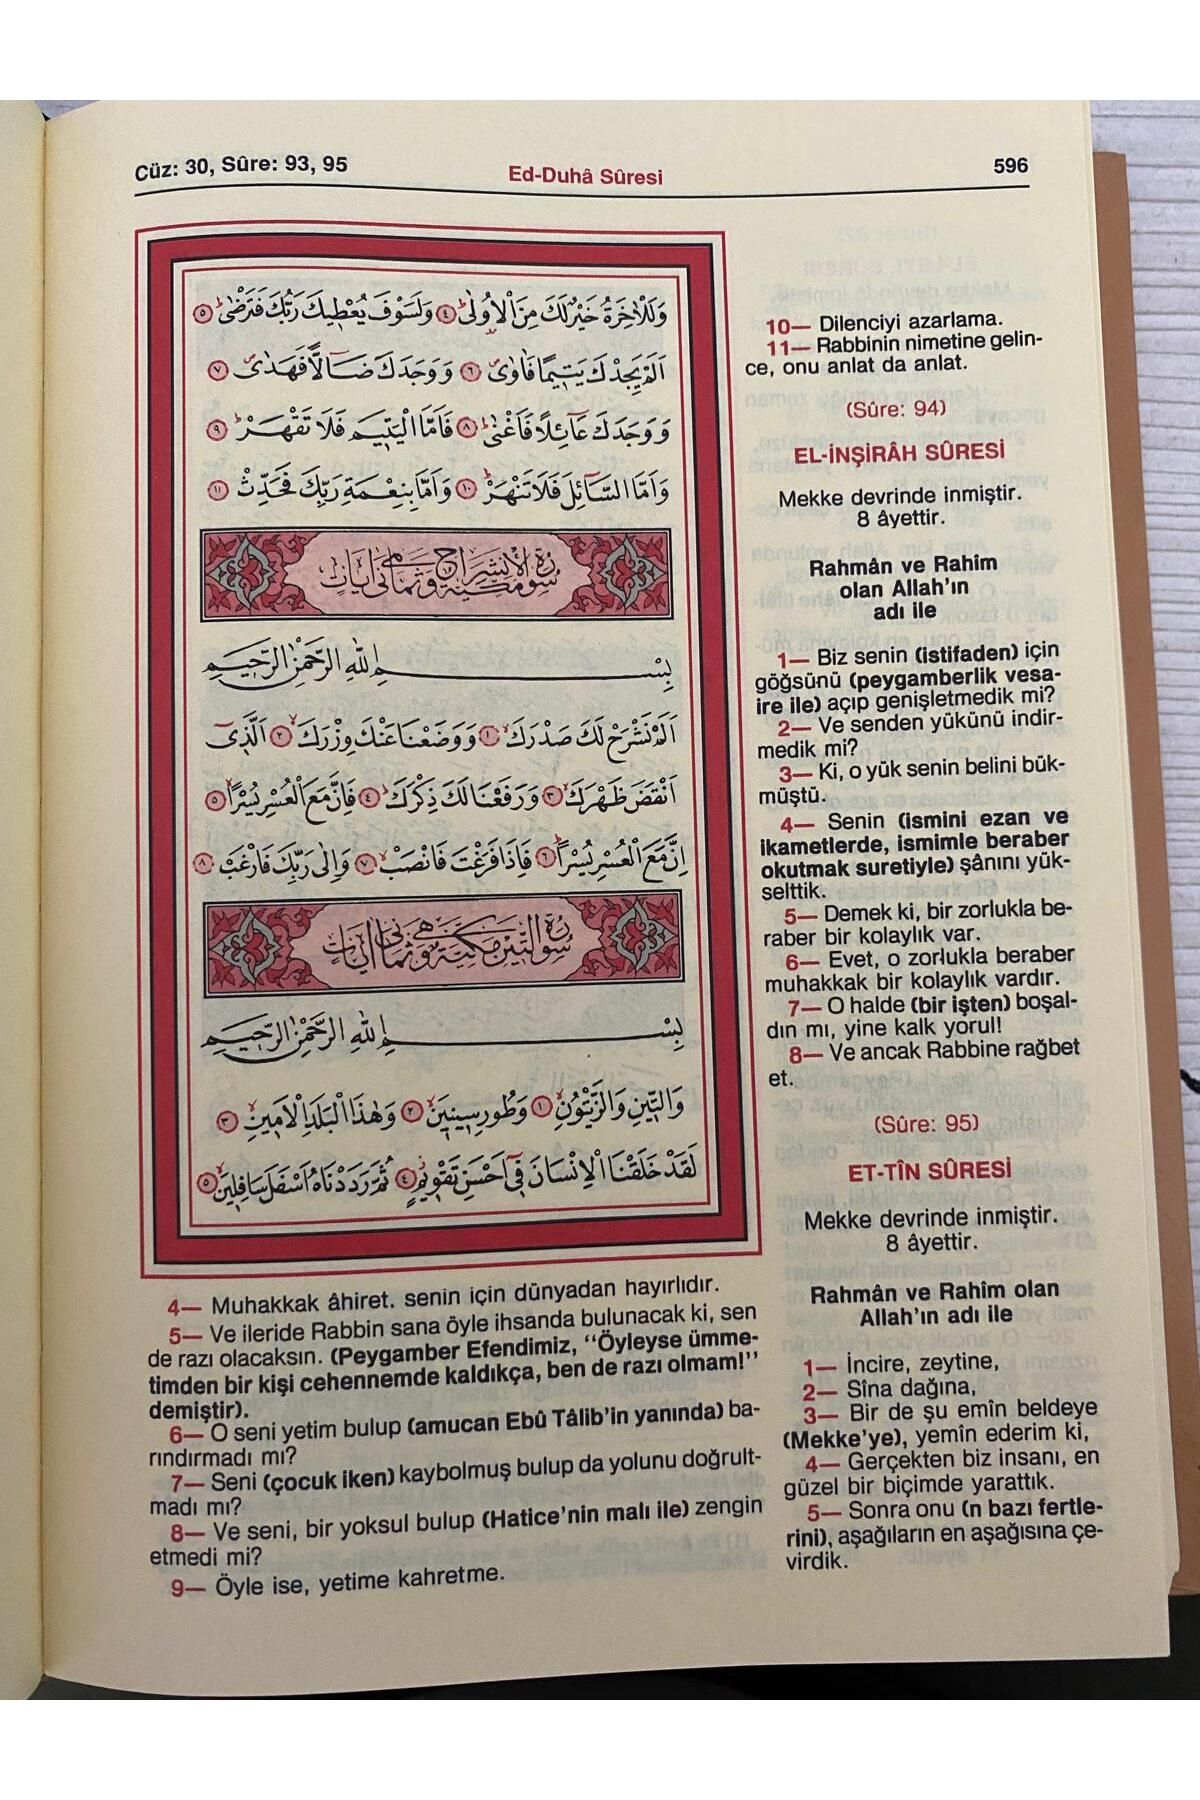 Cüz: 30, Sûre: 93, 95
Ed-Duhâ Sûresi
596
وَلَلْاٰخِرَةُ خَيْرٌ لَكَ مِنَ الْاُولٰى ٤ وَلَسَوْفَ يُعْطٖيكَ رَبُّكَ فَتَرْضٰى ٥
اَلَمْ يَجِدْكَ يَتٖيمًا فَاٰوٰى ٦ وَوَجَدَكَ ضَٓالًّا فَهَدٰى ٧
وَوَجَدَكَ عَٓائِلًا فَاَغْنٰى ٨ فَاَمَّا الْيَتٖيمَ فَلَا تَقْهَرْ ٩
وَاَمَّا السَّٓائِلَ فَلَا تَنْهَرْ ١٠ وَاَمَّا بِنِعْمَةِ رَبِّكَ فَحَدِّثْ ١١
سورة الانشراح مكية وهي ثماني ايات
بِسْمِ اللّٰهِ الرَّحْمٰنِ الرَّحٖيمِ
اَلَمْ نَشْرَحْ لَكَ صَدْرَكَ ١ وَوَضَعْنَا عَنْكَ وِزْرَكَ ٢ اَلَّذٖٓى
اَنْقَضَ ظَهْرَكَ ٣ وَرَفَعْنَا لَكَ ذِكْرَكَ ٤ فَاِنَّ مَعَ الْعُسْرِ يُسْرًا ٥
اِنَّ مَعَ الْعُسْرِ يُسْرًا ٦ فَاِذَا فَرَغْتَ فَانْصَبْ ٧ وَاِلٰى رَبِّكَ فَارْغَبْ ٨
سورة التين مكية وهي ثماني ايات
بِسْمِ اللّٰهِ الرَّحْمٰنِ الرَّحٖيمِ
وَالتّٖينِ وَالزَّيْتُونِ ١ وَطُورِ سٖينٖينَ ٢ وَهٰذَا الْبَلَدِ الْاَمٖينِ ٣
لَقَدْ خَلَقْنَا الْاِنْسَانَ فٖٓى اَحْسَنِ تَقْوٖيمٍ ٤ ثُمَّ رَدَدْنَاهُ اَسْفَلَ سَافِلٖينَ ٥
4— Muhakkak âhiret. senin için dünyadan hayırlıdır.
5— Ve ileride Rabbin sana öyle ihsanda bulunacak ki, sen
de razı olacaksın. (Peygamber Efendimiz, "Öyleyse ümme-
timden bir kişi cehennemde kaldıkça, ben de razı olmam!"
demiştir).
6— O seni yetim bulup (amucan Ebû Tâlib'in yanında) ba-
rındırmadı mı?
7— Seni (çocuk iken) kaybolmuş bulup da yolunu doğrult-
madı mı?
8— Ve seni, bir yoksul bulup (Hatice'nin malı ile) zengin
etmedi mi?
9— Öyle ise, yetime kahretme.
10— Dilenciyi azarlama.
11— Rabbinin nimetine gelin-
ce, onu anlat da anlat.
(Sûre: 94)
EL-İNŞİRÂH SÛRESİ
Mekke devrinde inmiştir.
8 âyettir.
Rahmân ve Rahim
olan Allah'ın
adı ile
1— Biz senin (istifaden) için
göğsünü (peygamberlik vesa-
ire ile) açıp genişletmedik mi?
2— Ve senden yükünü indir-
medik mi?
3— Ki, o yük senin belini bük-
müştü.
4— Senin (ismini ezan ve
ikametlerde, ismimle beraber
okutmak suretiyle) şânını yük-
selttik.
5— Demek ki, bir zorlukla be-
raber bir kolaylık var.
6— Evet, o zorlukla beraber
muhakkak bir kolaylık vardır.
7— O halde (bir işten) boşal-
dın mı, yine kalk yorul!
8— Ve ancak Rabbine rağbet
et.
(Sûre: 95)
ET-TÎN SÛRESİ
Mekke devrinde inmiştir.
8 âyettir.
Rahmân ve Rahîm olan
Allah'ın adı ile
1— İncire, zeytine,
2— Sîna dağına,
3— Bir de şu emîn beldeye
(Mekke'ye), yemîn ederim ki,
4— Gerçekten biz insanı, en
güzel bir biçimde yarattık.
5— Sonra onu (n bazı fertle-
rini), aşağıların en aşağısına çe-
virdik.